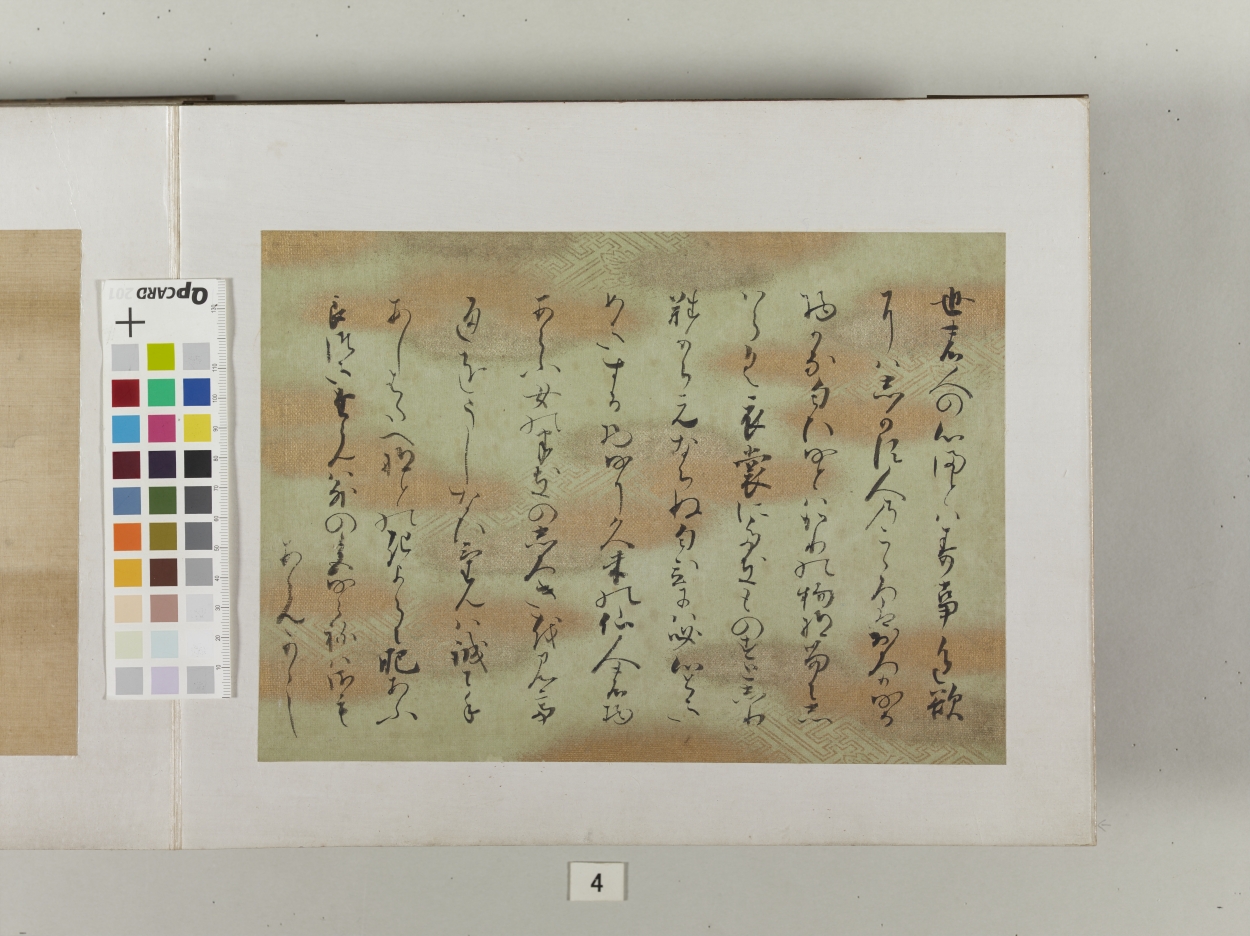 世の人の心まとはす事色欲
にはしかす人のこゝろはおろかなる
物かな匂ひなとはかりの物なるにしは
らく衣裳にたきものすとしり
なからえならぬ匂ひには必心とき
めきする物なり久米の仙人の物
あらふ女のはきのしろきを見て
通をうしなひけんは誠に手
あしはたへなとのきよらに肥あふ
らつきたらんは外の色ならねはさも
あらんかし
QPCARD 201
4